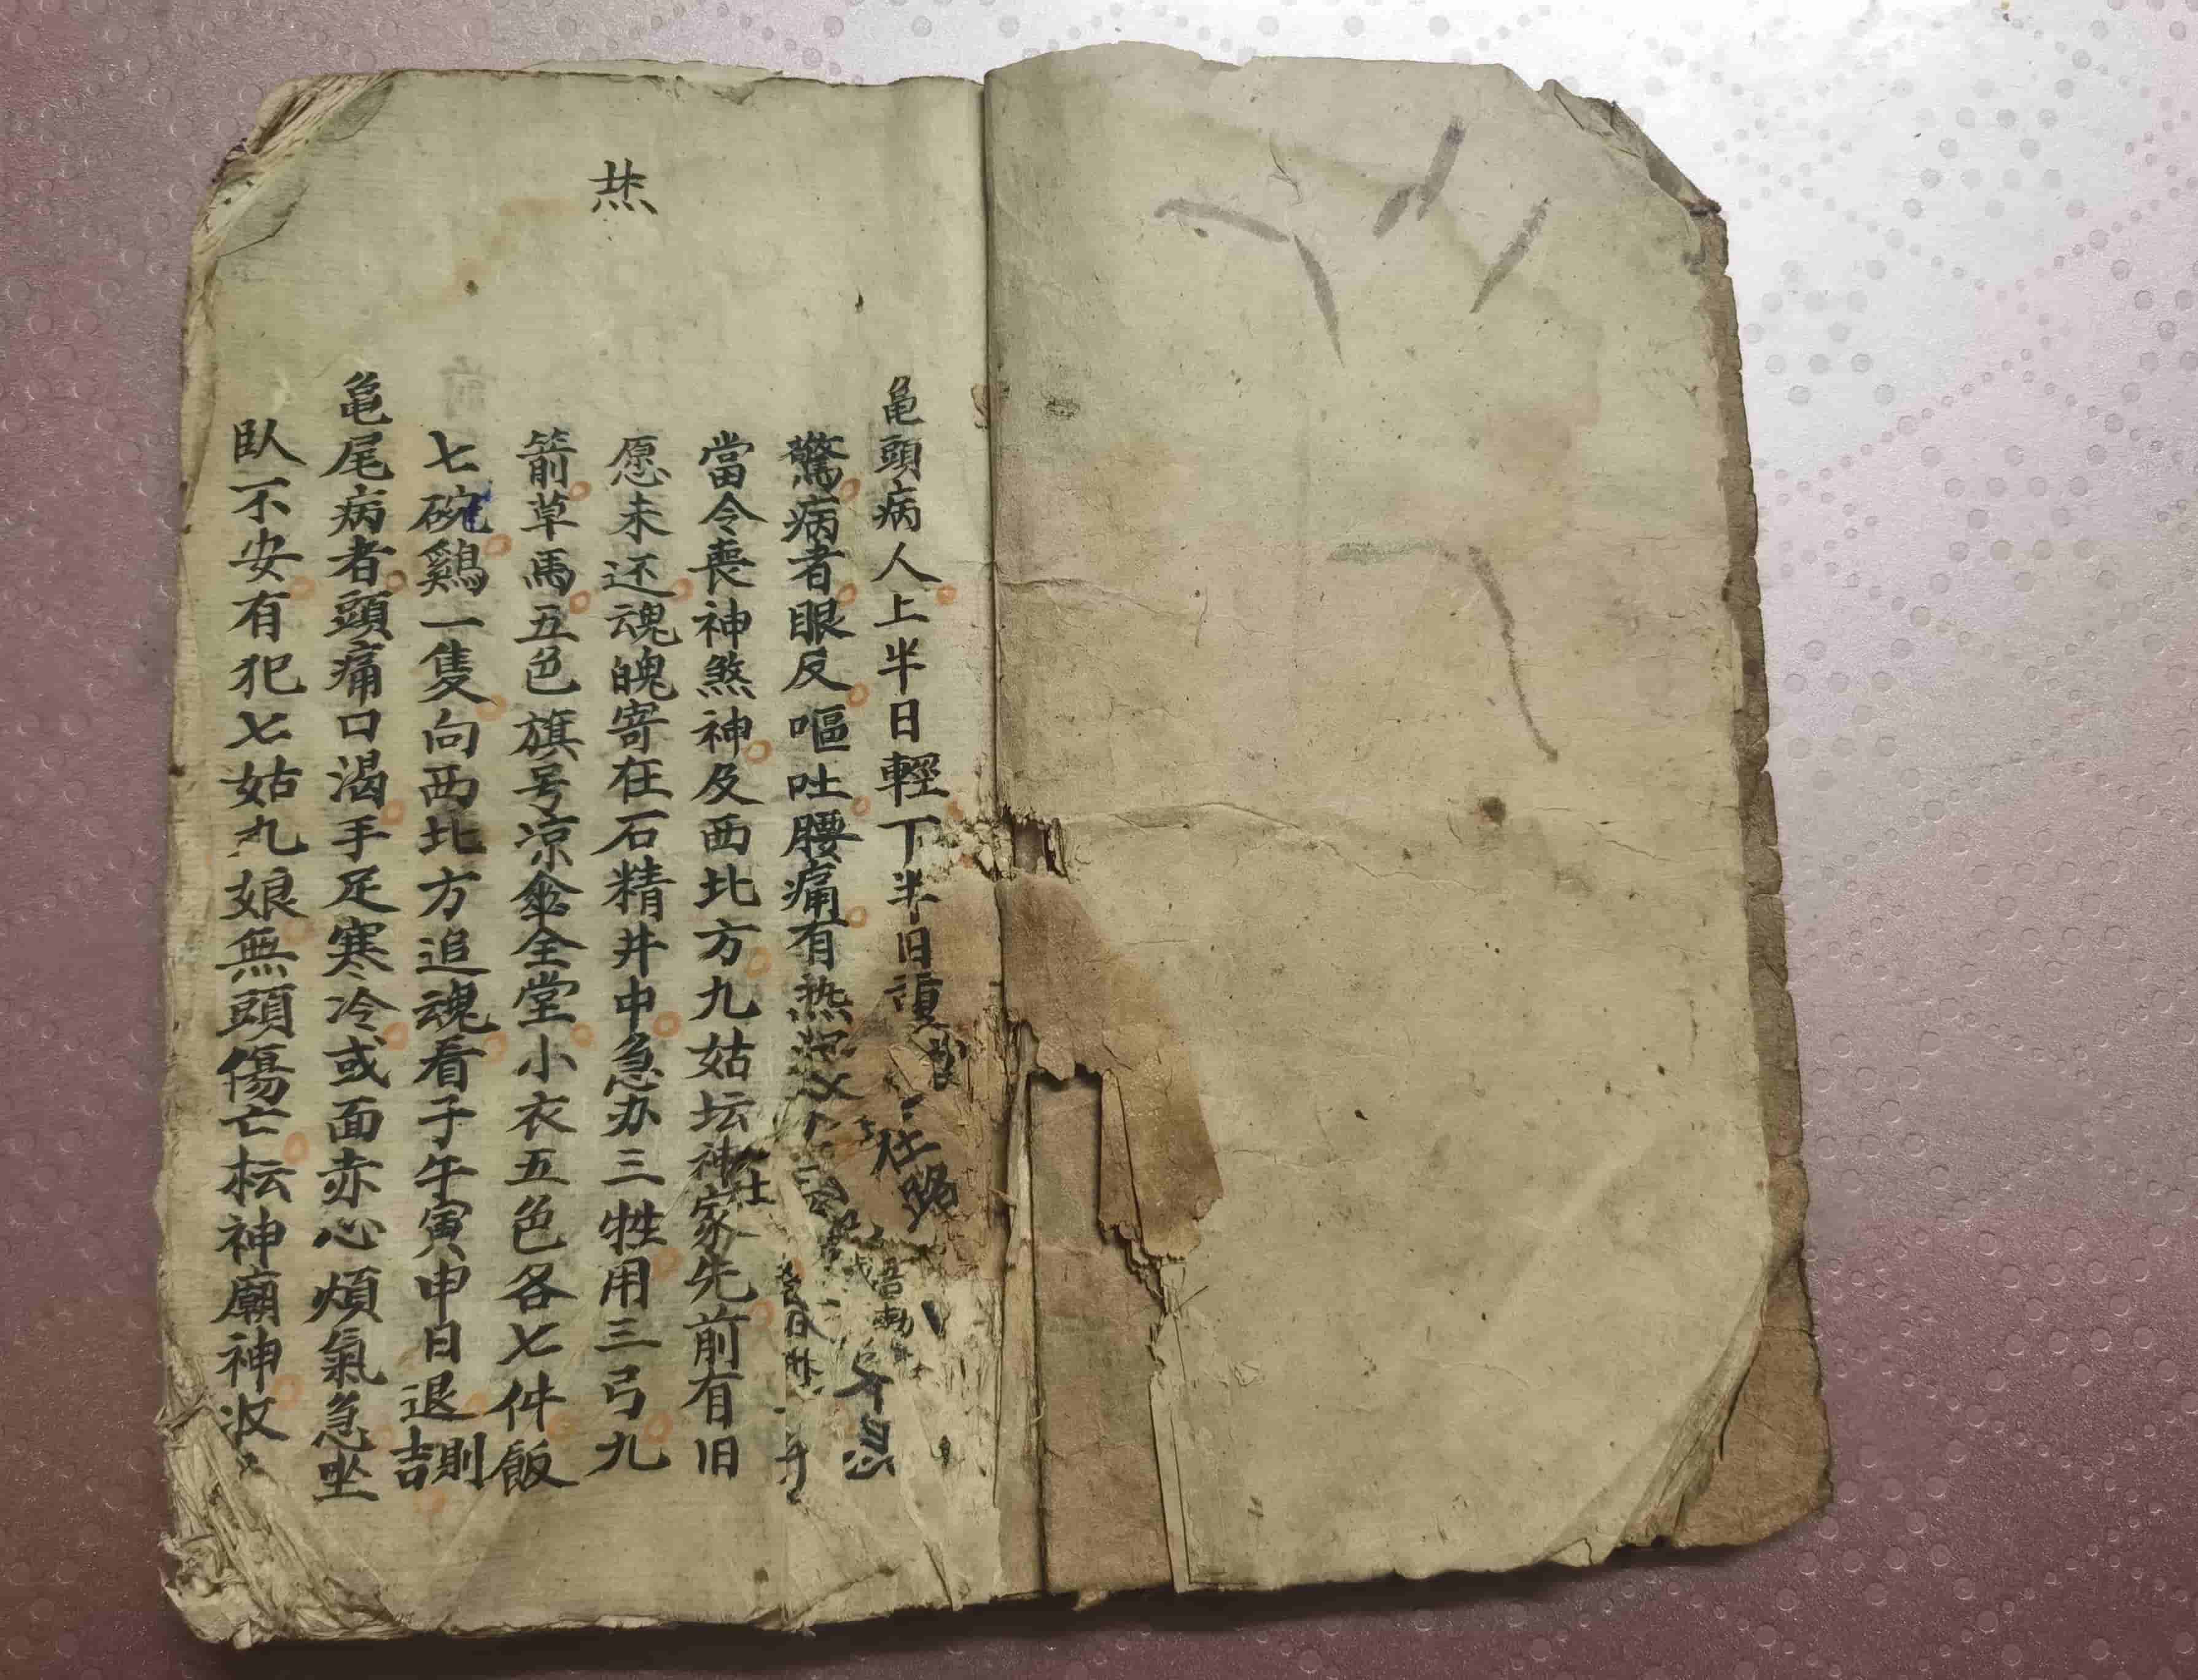 炁
亀頭病人上半日輕下半日重
驚病者眼反嘔吐腰痛有热
當令喪神煞神及西北方九姑坛神家先前有旧
愿未还魂魄寄在石精井中急办三牲用三弓九
箭草馬五色旗号凉傘全堂小衣五色各七件飯
七碗鷄一隻向西北方追魂看子午寅申日退則吉
亀尾病者頭痛口渴手足寒冷或面赤心煩氣急坐
臥不安有犯七姑九娘無頭傷亡坛神廟神